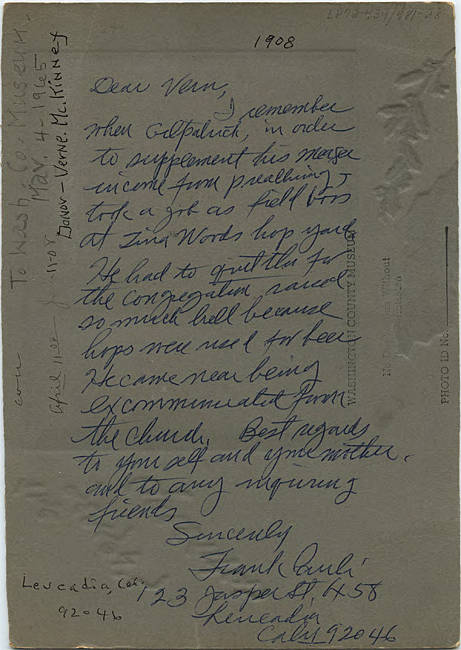 1908
Dear Vern,
I remember
when Gilpatrick, in order
to supplement his meager
income from preaching,
took a job as field boss
at Zina Woods hop yard
He had to quit tho for
the congregation raised
so much hell because
hops were used for beer
He came near being
excommunicated from
the church. Best regards
to yourself and your mother.
and to any inquiring
friends
Sincerely
Frank Pauli
123 Jasper St, #58
Leucadia
Calif 92046
Leucadia, Cal.
92046
To Wash. Co. Museum.
Mar. 4-1965
Donor-Verne. McKinney
WASHINGTON COUNTY MUSEUM
PHOTO ID No.